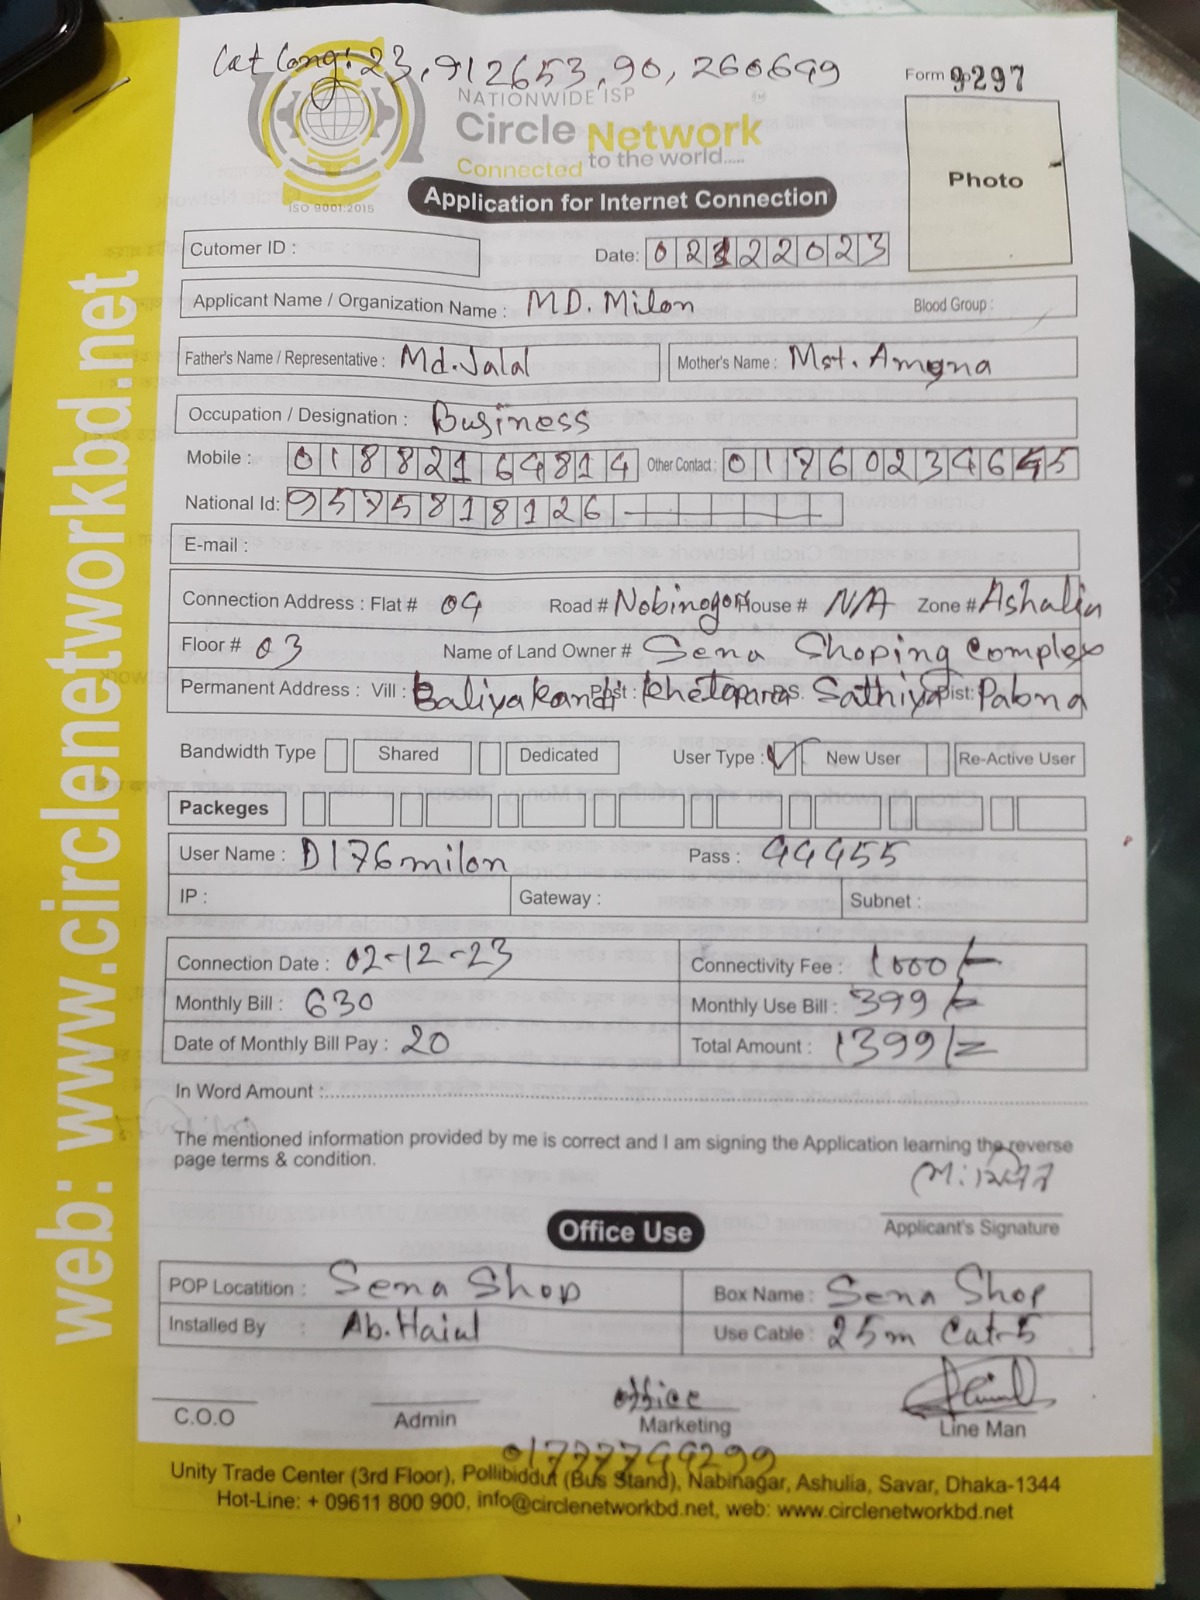 Lat Long: 23.912653, 90.260649
NATIONWIDE ISP
Circle Network
Connected to the world.....
ISO 9001:2015
Form 9297
Photo
Application for Internet Connection
Cutomer ID :
Date: 02122023
Applicant Name / Organization Name : MD. Milon Blood Group :
Father's Name / Representative : Md. Jalal Mother's Name : Mst. Amena
Occupation / Designation : Business
Mobile : 01882164814 Other Contact : 01760234645
National Id: 9575818126
E-mail :
Connection Address : Flat # 04 Road # Nobinogor House # N/A Zone # Ashalia
Floor # 03 Name of Land Owner # Sena Shoping Complex
Permanent Address : Vill : Baliyakandi Post : Khetopara P.S. Sathiya Dist: Pabna
Bandwidth Type Shared Dedicated User Type : ✓ New User Re-Active User
Packeges
User Name : D176milon Pass : 44455
IP : Gateway : Subnet :
Connection Date : 02-12-23 Connectivity Fee : 1000/-
Monthly Bill : 630 Monthly Use Bill : 399/-
Date of Monthly Bill Pay : 20 Total Amount : 1399/=
In Word Amount :
The mentioned information provided by me is correct and I am signing the Application learning the reverse
page terms & condition.
মো: মিলন
Applicant's Signature
Office Use
POP Locatition : Sena Shop Box Name : Sena Shop
Installed By : Ab. Haiul Use Cable : 25m Cat-5
C.O.O Admin office Marketing Line Man
01777744299
Unity Trade Center (3rd Floor), Pollibiddut (Bus Stand), Nabinagar, Ashulia, Savar, Dhaka-1344
Hot-Line: + 09611 800 900, info@circlenetworkbd.net, web: www.circlenetworkbd.net
web: www.circlenetworkbd.net